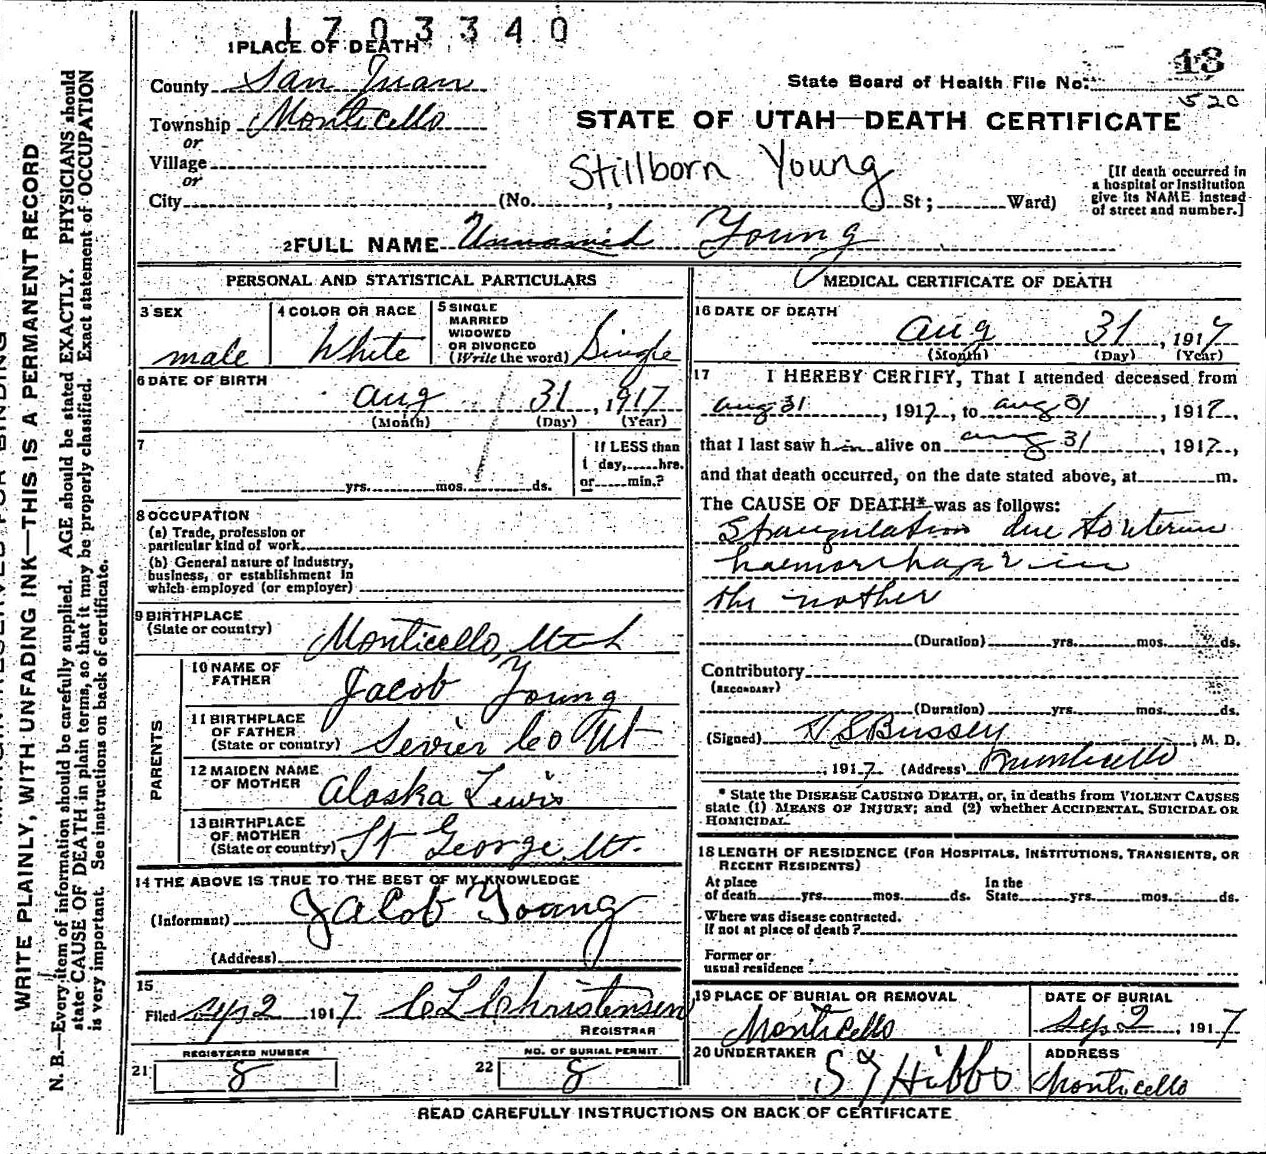 1703340
1 PLACE OF DEATH
County San Juan
State Board of Health File No. 43
520
Township Monticello
STATE OF UTAH—DEATH CERTIFICATE
or
Village
or
Stillborn Young
City (No. , St; Ward)
[If death occurred in
a hospital or institution
give its NAME instead
of street and number.]
2 FULL NAME Unnamed Young
PERSONAL AND STATISTICAL PARTICULARS
3 SEX
male
4 COLOR OR RACE
White
5 SINGLE
MARRIED
WIDOWED
OR DIVORCED
(Write the word) Single
6 DATE OF BIRTH
aug 31, 1917
(Month) (Day) (Year)
7
yrs. mos. ds.
If LESS than
1 day, hrs.
or min.?
8 OCCUPATION
(a) Trade, profession or
particular kind of work
(b) General nature of industry,
business, or establishment in
which employed (or employer)
9 BIRTHPLACE
(State or country) Monticello, Utah
PARENTS
10 NAME OF
FATHER Jacob Young
11 BIRTHPLACE
OF FATHER
(State or country) Sevier Co Ut
12 MAIDEN NAME
OF MOTHER Alaska Lewis
13 BIRTHPLACE
OF MOTHER
(State or country) St George Ut.
14 THE ABOVE IS TRUE TO THE BEST OF MY KNOWLEDGE
(Informant) Jacob Young
(Address)
15
Filed Sep 2 1917 C L Christensen
REGISTRAR
REGISTERED NUMBER
21 8
NO. OF BURIAL PERMIT
22 8
MEDICAL CERTIFICATE OF DEATH
16 DATE OF DEATH
aug 31, 1917
(Month) (Day) (Year)
17 I HEREBY CERTIFY, That I attended deceased from
aug 31, 1917, to aug 31, 1917,
that I last saw him alive on aug 31, 1917,
and that death occurred, on the date stated above, at m.
The CAUSE OF DEATH* was as follows:
Strangulation due to uterine
haemorrhage in
the mother
(Duration) yrs. mos. ds.
Contributory
(SECONDARY)
(Duration) yrs. mos. ds.
(Signed) H S Bussey, M. D.
, 1917 (Address) Monticello
* State the DISEASE CAUSING DEATH, or, in deaths from VIOLENT CAUSES
state (1) MEANS OF INJURY; and (2) whether ACCIDENTAL, SUICIDAL OR
HOMICIDAL.
18 LENGTH OF RESIDENCE (FOR HOSPITALS, INSTITUTIONS, TRANSIENTS, OR
RECENT RESIDENTS)
At place
of death yrs. mos. ds.
In the
State yrs. mos. ds.
Where was disease contracted.
If not at place of death?
Former or
usual residence
19 PLACE OF BURIAL OR REMOVAL
Monticello
DATE OF BURIAL
Sep 2, 1917
20 UNDERTAKER
Hibbs
ADDRESS
Monticello
READ CAREFULLY INSTRUCTIONS ON BACK OF CERTIFICATE
WRITE PLAINLY, WITH UNFADING INK—THIS IS A PERMANENT RECORD
N. B.—Every item of information should be carefully supplied. AGE should be stated EXACTLY. PHYSICIANS should
state CAUSE OF DEATH in plain terms, so that it may be properly classified. Exact statement of OCCUPATION
is very important. See instructions on back of certificate.